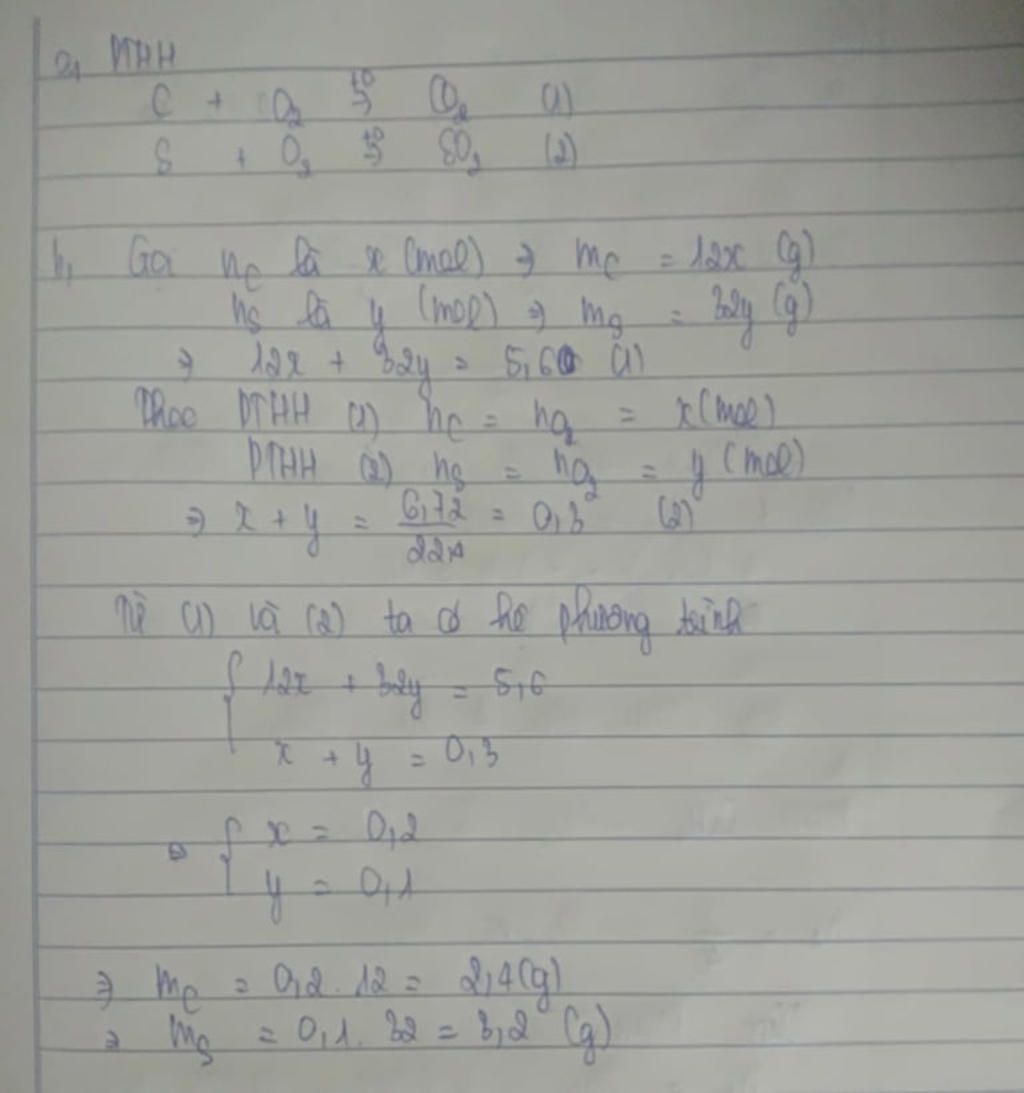 a, PTHH
C + O₂ →^t° CO₂ (1)
S + O₂ →^t° SO₂ (2)
b, Gọi nC là x (mol) => mC = 12x (g)
nS là y (mol) => mS = 32y (g)
=> 12x + 32y = 5,6 (1)
Theo PTHH (1) nC = nO₂ = x (mol)
PTHH (2) nS = nO₂ = y (mol)
=> x + y = 6,72/22,4 = 0,3 (2)
Từ (1) và (2) ta có hệ phương trình
{ 12x + 32y = 5,6
x + y = 0,3
=> { x = 0,2
y = 0,1
=> mC = 0,2 . 12 = 2,4 (g)
=> mS = 0,1 . 32 = 3,2 (g)